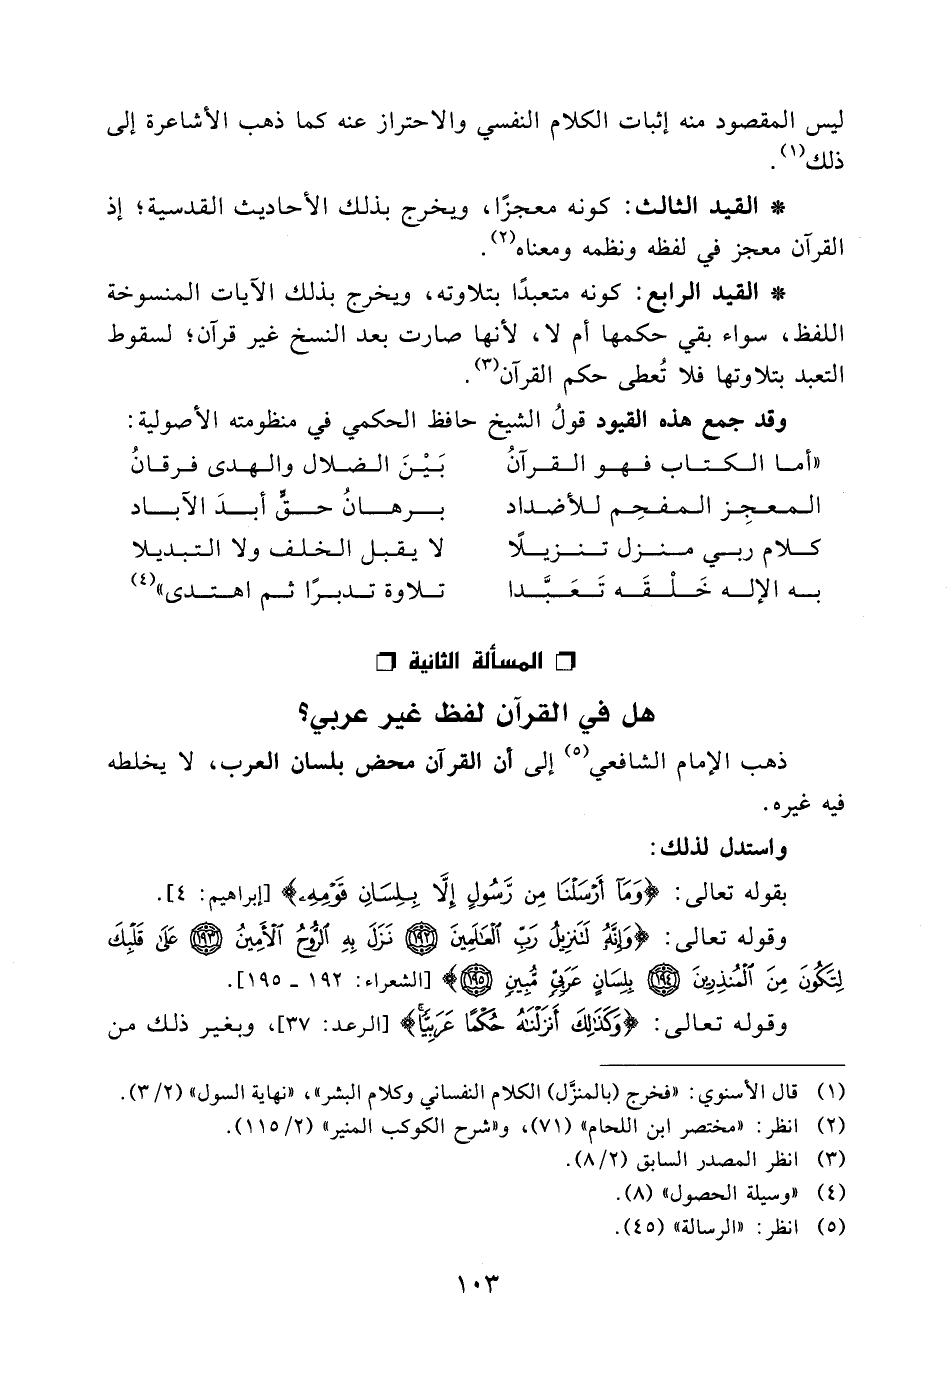 ليس المقصود منه إثبات الكلام النفسي والاحتراز عنه كما ذهب الأشاعرة إلى
ذلك(١).
* القيد الثالث: كونه معجزًا، ويخرج بذلك الأحاديث القدسية؛ إذ
القرآن معجز في لفظه ونظمه ومعناه(٢).
* القيد الرابع: كونه متعبدًا بتلاوته، ويخرج بذلك الآيات المنسوخة
اللفظ، سواء بقي حكمها أم لا، لأنها صارت بعد النسخ غير قرآن؛ لسقوط
التعبد بتلاوتها فلا تُعطى حكم القرآن(٣).
وقد جمع هذه القيود قولُ الشيخ حافظ الحكمي في منظومته الأصولية:
«أما الكتاب فهو القرآنُ بَيْنَ الضلال والهدى فرقانُ
المعجِز المفحِم للأضداد برهانُ حقٍّ أبدَ الآباد
كلام ربي منزل تنزيلًا لا يقبل الخلف ولا التبديلا
به الإله خَلْقَه تَعَبَّدا تلاوة تدبرًا ثم اهتدى»(٤)
❒ المسألة الثانية ❒
هل في القرآن لفظ غير عربي؟
ذهب الإمام الشافعي(٥) إلى أن القرآن محض بلسان العرب، لا يخلطه
فيه غيره.
واستدل لذلك:
بقوله تعالى: ﴿وَمَآ أَرْسَلْنَا مِن رَّسُولٍ إِلَّا بِلِسَانِ قَوْمِهِۦ﴾ [إبراهيم: ٤].
وقوله تعالى: ﴿وَإِنَّهُۥ لَتَنزِيلُ رَبِّ ٱلْعَٰلَمِينَ ۝١٩٢ نَزَلَ بِهِ ٱلرُّوحُ ٱلْأَمِينُ ۝١٩٣ عَلَىٰ قَلْبِكَ
لِتَكُونَ مِنَ ٱلْمُنذِرِينَ ۝١٩٤ بِلِسَانٍ عَرَبِيٍّ مُّبِينٍ ۝١٩٥﴾ [الشعراء: ١٩٢ ـ ١٩٥].
وقوله تعالى: ﴿وَكَذَٰلِكَ أَنزَلْنَٰهُ حُكْمًا عَرَبِيًّا ۚ﴾ [الرعد: ٣٧]، وبغير ذلك من
(١) قال الأسنوي: «فخرج (بالمنزَّل) الكلام النفساني وكلام البشر»، «نهاية السول» (٣/٢).
(٢) انظر: «مختصر ابن اللحام» (٧١)، و«شرح الكوكب المنير» (١١٥/٢).
(٣) انظر المصدر السابق (٨/٢).
(٤) «وسيلة الحصول» (٨).
(٥) انظر: «الرسالة» (٤٥).
١٠٣